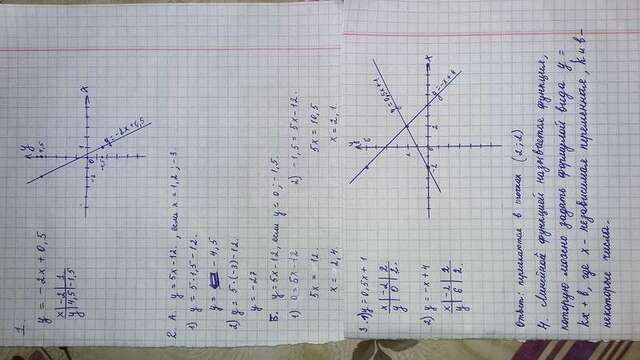 1.
y = -2x + 0,5
x | -2 | 1
y | 4,5 | -1,5
y
4,5
-2 0 1 x
-1,5
y=-2x+0,5
2. А. y = 5x-12. , если x = 1,2 ; -3
1) y = 5·1,5-12.
y = - 4,5
2) y = 5·(-3)-12.
y = -27
Б. y = 5x-12, если y = 0 ; -1,5.
1) 0 = 5x-12 2) -1,5 = 5x-12.
5x = 12. 5x = 10,5
x = 2,4. x = 2,1.
3. 1) y = 0,5x+1
x | -2 | 2
y | 0 | 2.
2) y = -x+4
x | -2 | 2
y | 6 | 2.
y
6
y=0,5x+1
2
-2 0 2 x
y=-x+4
Ответ: пересекаются в точках (2;2)
4. Линейной функцией называется функция,
которую можно задать формулой вида y =
kx + b, где x - независимая переменная, k и b-
некоторые числа.